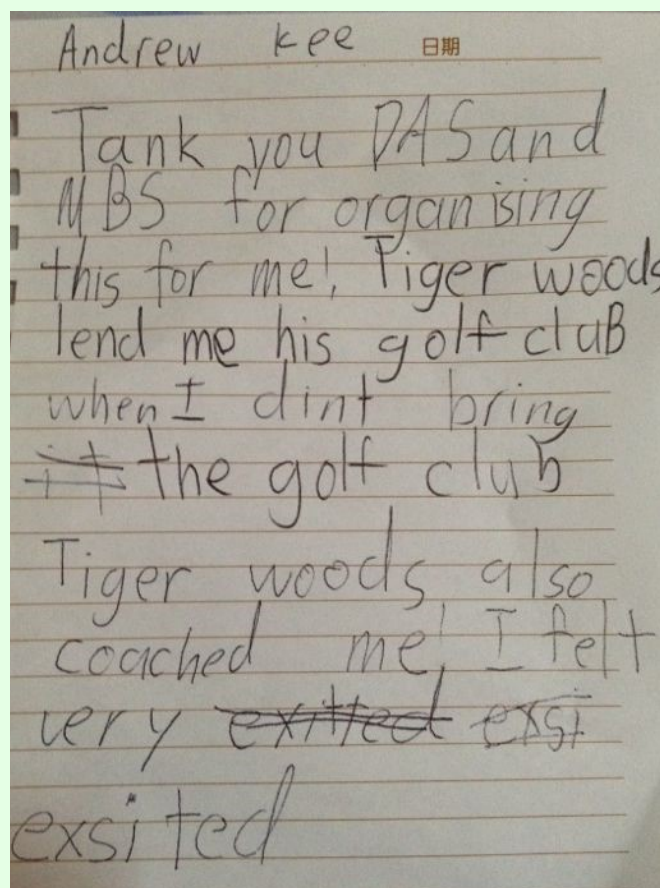 Andrew Kee 日期
Tank you DAS and
MBS for organising
this for me!, Tiger woods
lend me his golf cluB
when I dint bring
it the golf club
Tiger woods also
coached me! I felt
very exitted exsi
exsited